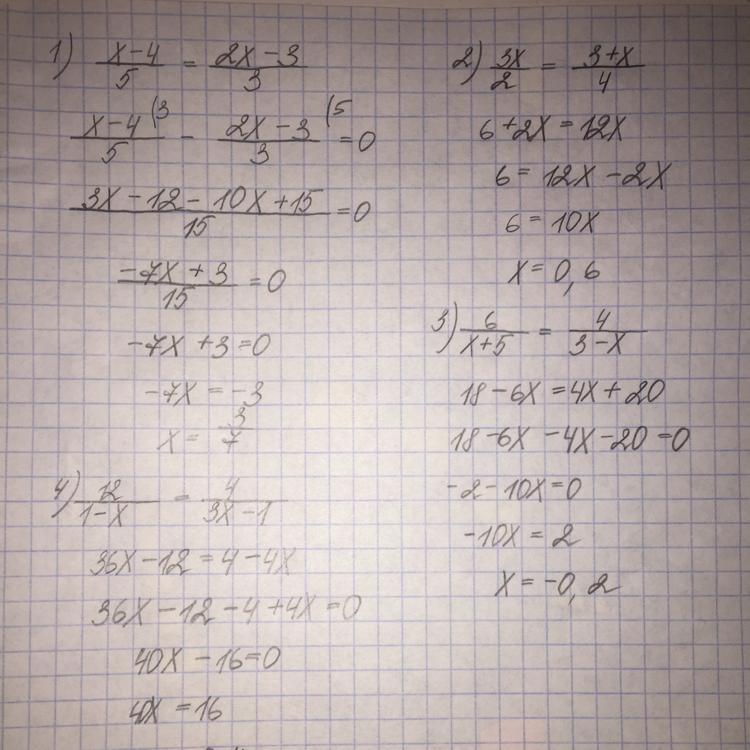 1) (x-4)/5 = (2x-3)/3
(x-4)/5 (3 - (2x-3)/3 (5 = 0
(3x-12-10x+15)/15 = 0
(-7x+3)/15 = 0
-7x+3=0
-7x = -3
x = 3/7
2) 3x/2 = (3+x)/4
6+2x=12x
6=12x-2x
6=10x
x=0,6
3) 6/(x+5) = 4/(3-x)
18-6x=4x+20
18-6x-4x-20=0
-2-10x=0
-10x=2
x=-0,2
4) 12/(1-x) = 4/(3x-1)
36x-12=4-4x
36x-12-4+4x=0
40x-16=0
40x=16